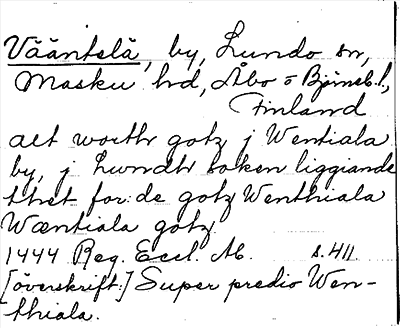 Vääntelä, by, Lundo sn,
Masku hd, Åbo o Björneb. l.,
Finland
alt worthr gotz j Wentiala
by, j Lundhr soken liggiande
thet for:de gotz Wenthiala
Wæntiala gotz.
1444 Reg. Eccl. Ab. s. 411.
[överskrift:] Super predio Wen-
thiala.